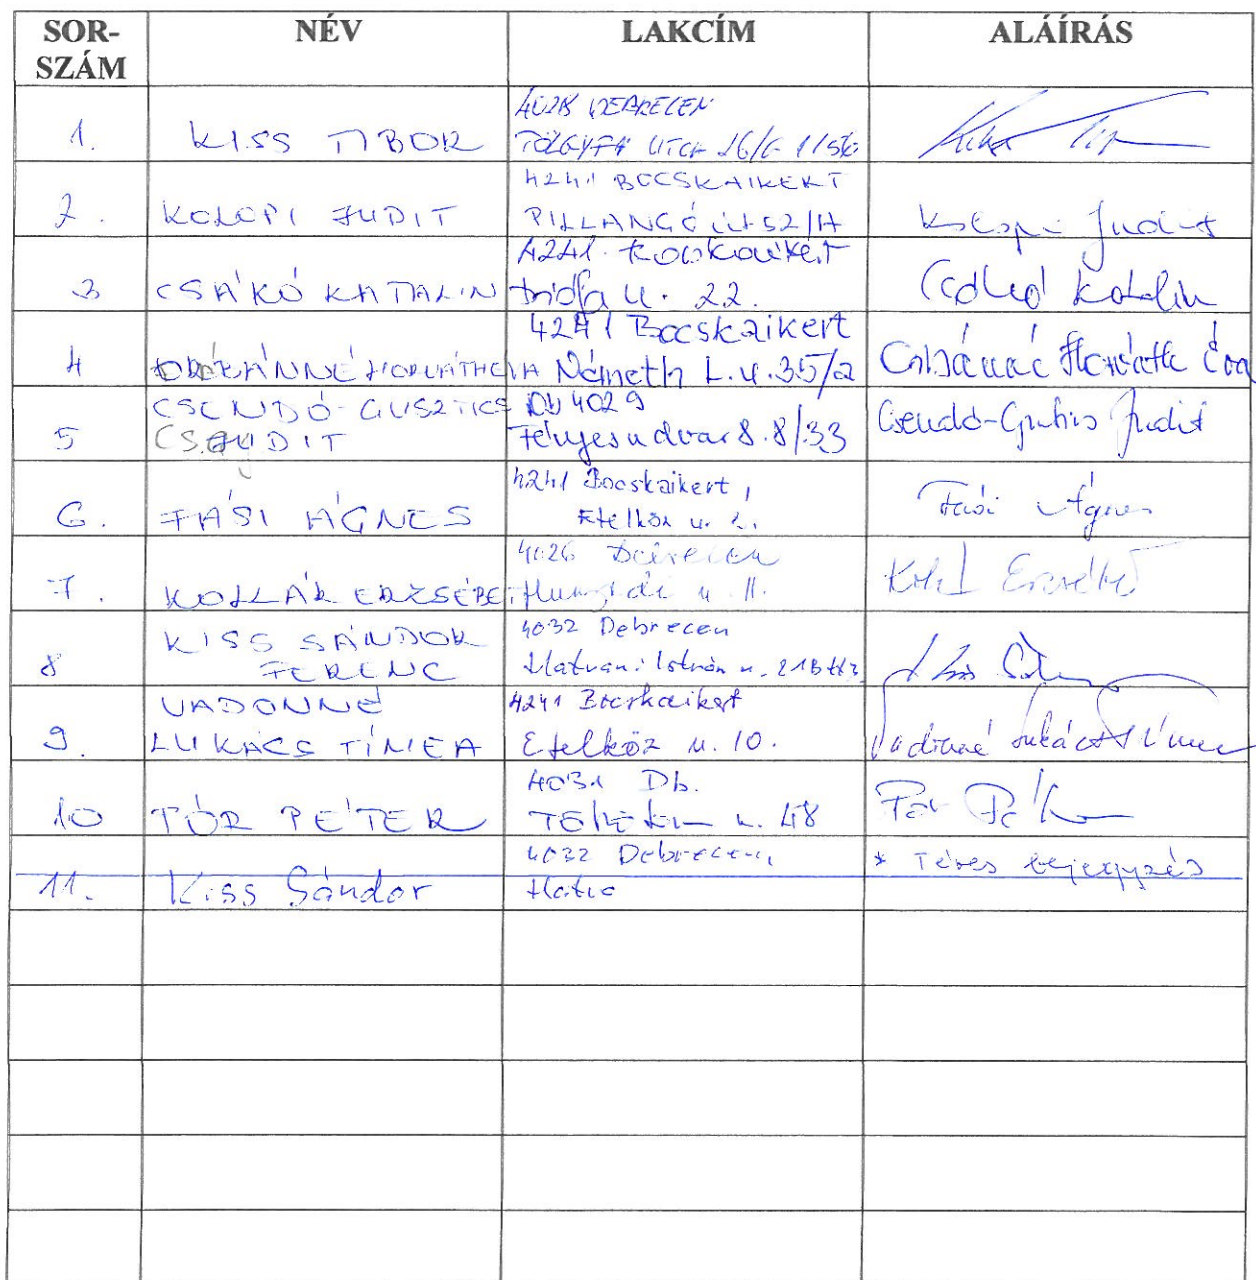 SOR-
SZÁM
NÉV
LAKCÍM
ALÁÍRÁS
1.
KISS TIBOR
4028 DEBRECEN
TÖLGYFA UTCA
2.
KOLOPI JUDIT
4241 BOCSKAIKERT
PILLANGÓ út 52/A
Kolopi Judit
3
CSÁKÓ KATALIN
4241. Bocskaikert
u. 22.
Csákó Katalin
4
4241 Bocskaikert
Németh L. u. 35/a
Horváth Éva
5
CSENDŐ-GUSZTICS
JUDIT
Db 4029
Fényesudvar 8. 8/33
Csendő-Gusztics Judit
6.
FÁSI ÁGNES
4241 Bocskaikert,
Etelköz u. 2.
Fási Ágnes
7.
KOLLÁR ERZSÉBET
4026 Debrecen
Hunyadi u. 11.
Erzsébet
8
KISS SÁNDOR
FERENC
4032 Debrecen
Hatvani István u.
9.
VADONNÉ
LUKÁCS TÍMEA
4241 Bocskaikert
Etelköz u. 10.
Vadonné Lukács Tímea
10
PÓR PÉTER
4031 Db.
u. 48
11.
Kiss Sándor
4032 Debrecen,
Hatva
* Téves bejegyzés